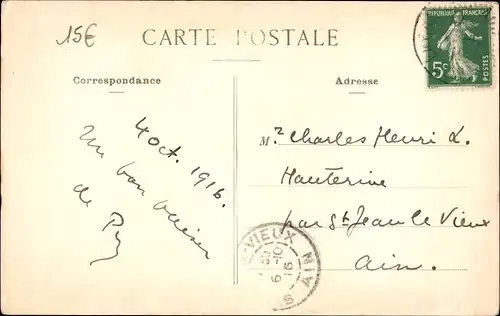 15€
CARTE POSTALE
RÉPUBLIQUE FRANÇAISE
5c
POSTES
Correspondance
Adresse
4 oct. 1916.
Un bon baiser
de
Mr Charles Henri L.
Hauterive
par St Jean le Vieux
Ain.
-VIEUX AIN
6 -10
16